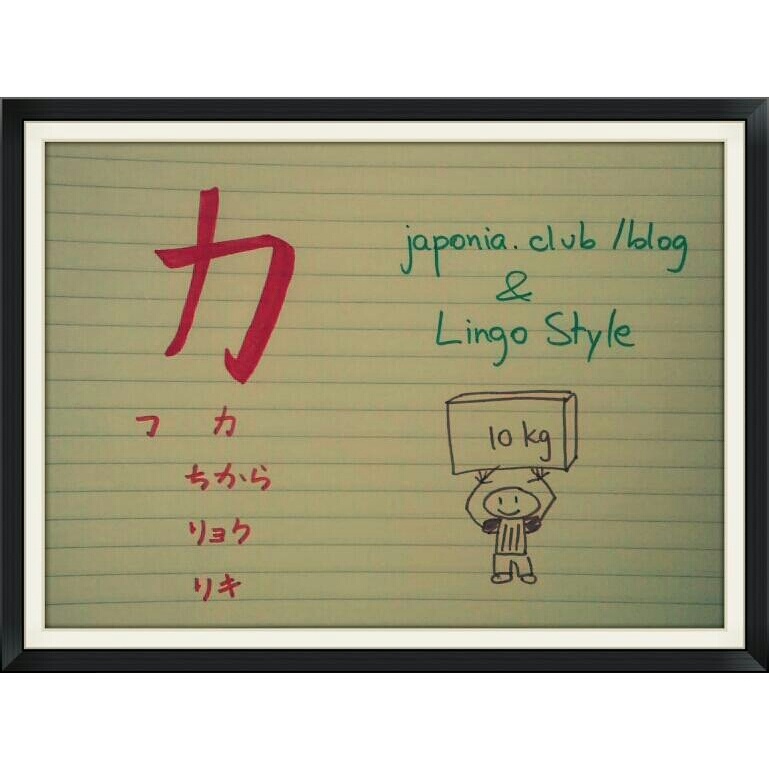 力
フ 力
ちから
リョク
リキ
japonia.club/blog
&
Lingo Style
10 kg